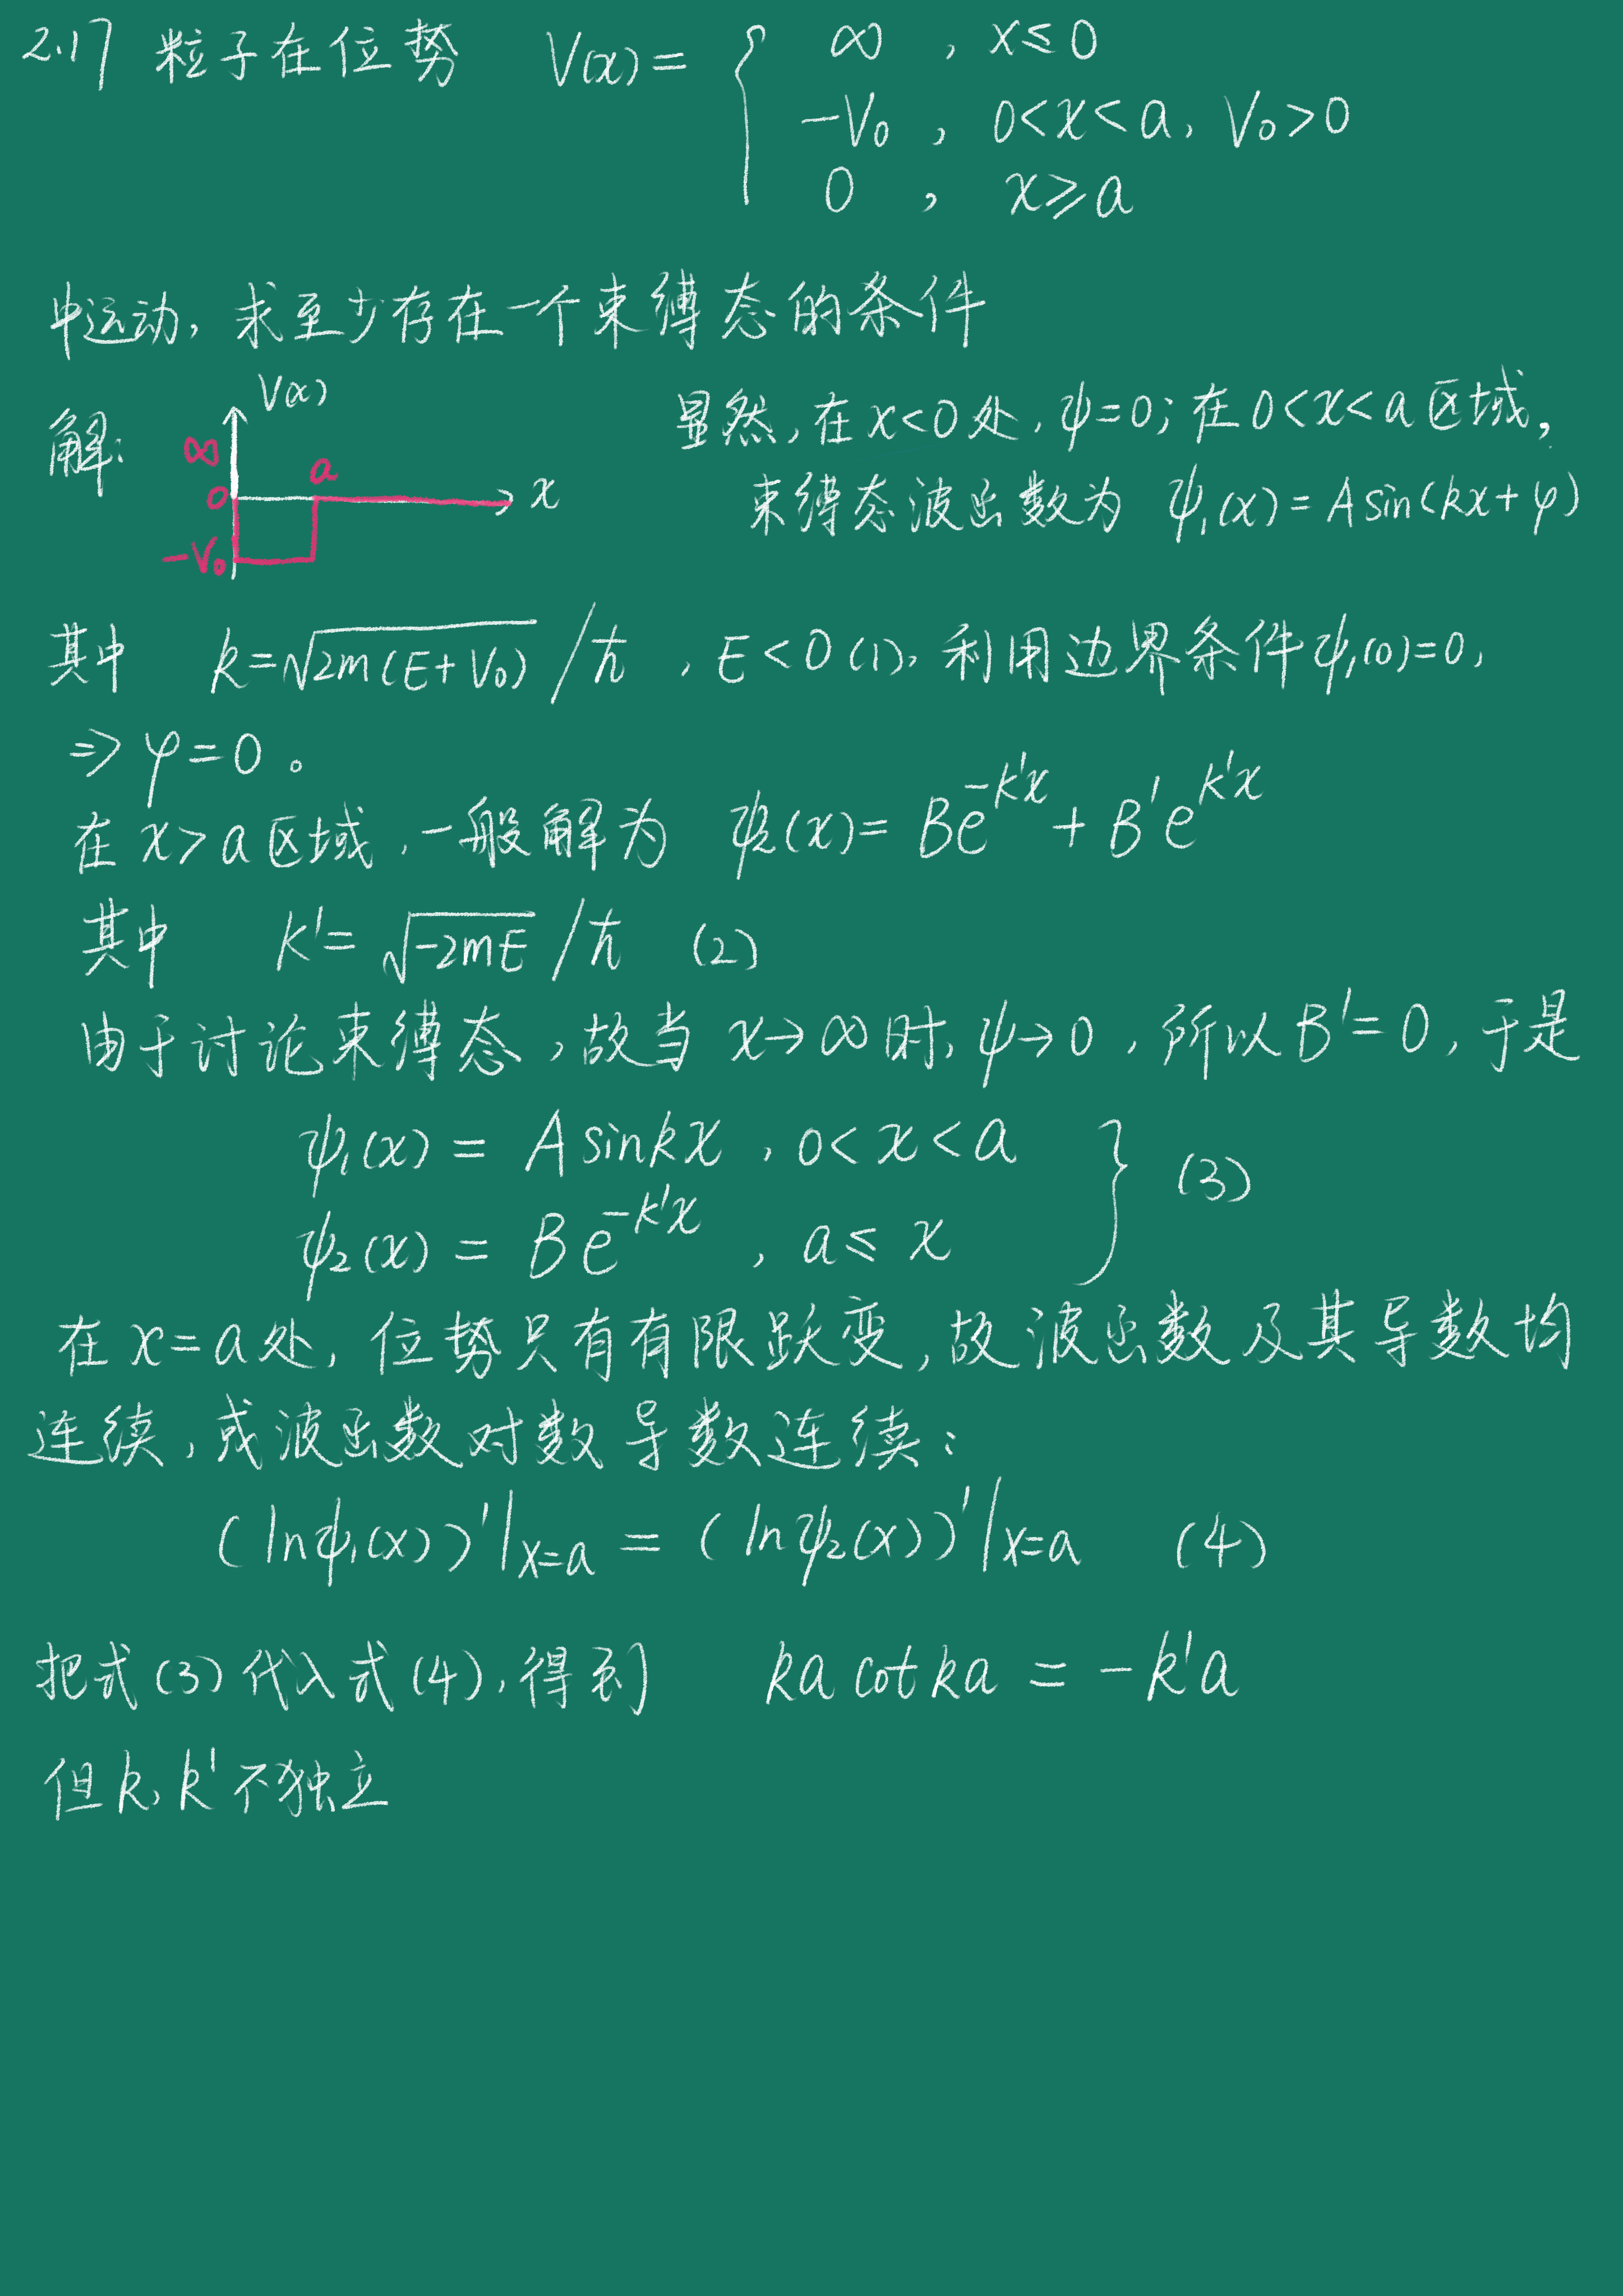 2.17 粒子在位势 V(x) = { ∞ , x ≤ 0
-V₀ , 0<x<a, V₀>0
0 , x ≥ a
中运动, 求至少存在一个束缚态的条件
解:
V(x)
∞
a
0
x
-V₀
显然, 在 x<0 处, ψ=0; 在 0<x<a 区域,
束缚态波函数为 ψ₁(x) = A sin(kx+φ)
其中 k=√2m(E+V₀) / ħ , E<0 (1), 利用边界条件 ψ₁(0)=0,
⇒ φ=0 。
在 x>a 区域, 一般解为 ψ₂(x) = Be^{-k'x} + B'e^{k'x}
其中 k' = √-2mE / ħ (2)
由于讨论束缚态, 故当 x→∞ 时, ψ→0, 所以 B'=0, 于是
ψ₁(x) = A sinkx , 0<x<a
ψ₂(x) = Be^{-k'x} , a ≤ x } (3)
在 x=a 处, 位势只有有限跃变, 故波函数及其导数均
连续, 或波函数对数导数连续:
(lnψ₁(x))'|x=a = (lnψ₂(x))'|x=a (4)
把式(3)代入式(4), 得到 ka cot ka = -k'a
但 k, k' 不独立